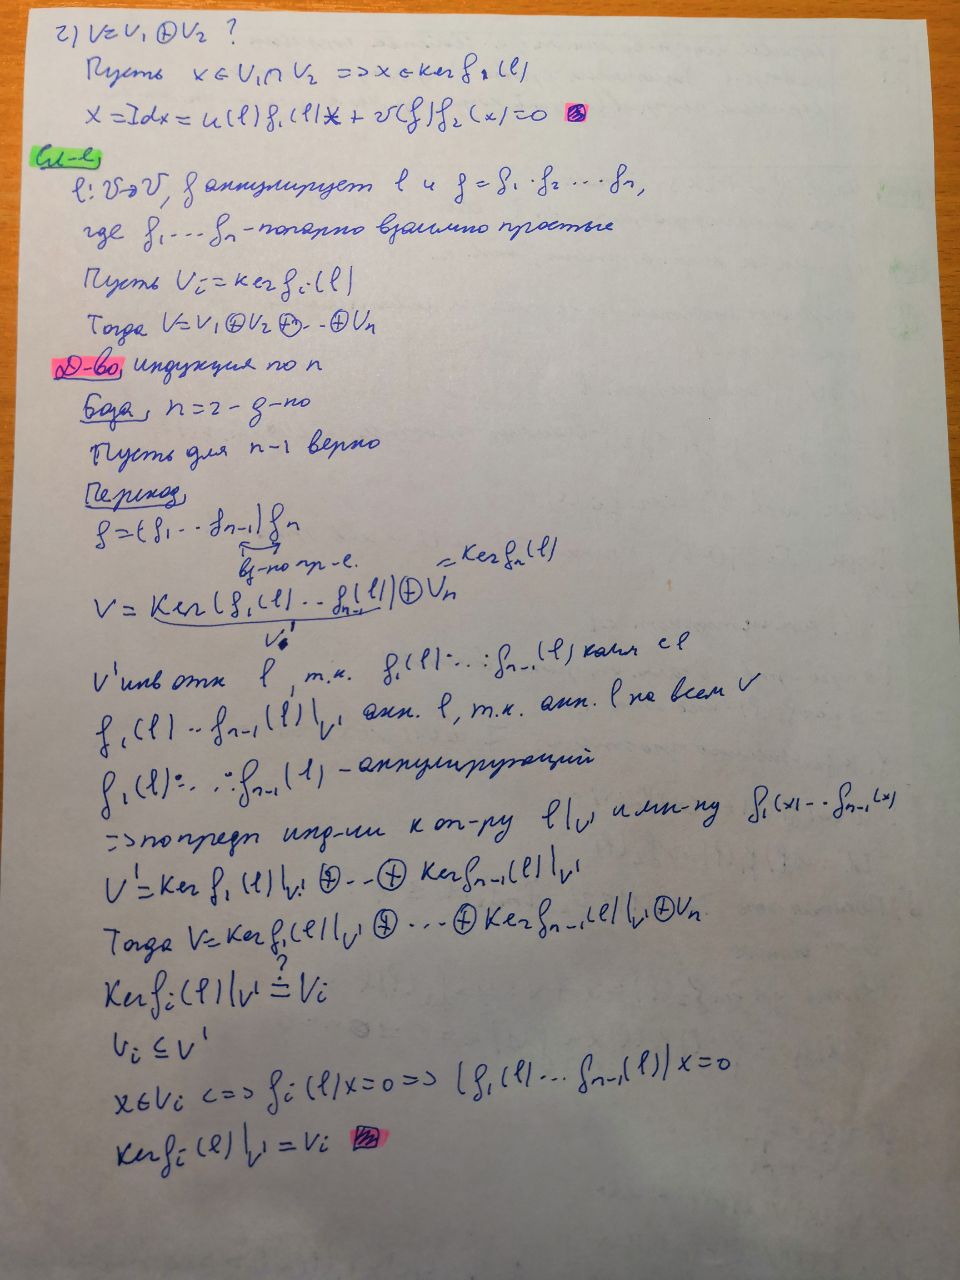 2) V=V₁⊕V₂ ?
Пусть x∈V₁∩V₂ => x∈Ker f₂(l)
x = Idx = u(l)f₁(l)x + v(f)f₂(x)=0
Сл-е
l: V→V, f аннулирует l и f = f₁·f₂·...·fₙ,
где f₁...fₙ - попарно взаимно простые
Пусть Vᵢ = Ker fᵢ(l)
Тогда V=V₁⊕V₂⊕...⊕Vₙ
Д-во, индукция по n
База, n=2 - д-но
Пусть для n-1 верно
Переход,
f=(f₁...fₙ₋₁)fₙ
вз-но пр-е.
V = Ker(f₁(l)...fₙ₋₁(l))⊕Vₙ = Ker fₙ(l)
V'
V' инв отн l, т.к. f₁(l)·...·fₙ₋₁(l) комм с l
f₁(l)...fₙ₋₁(l)|V' анн. l, т.к. анн. l на всем V
f₁(l)·...·fₙ₋₁(l) - аннулирующий
=> по предп инд-ии к оп-ру l|V' и мн-ну f₁(x)...fₙ₋₁(x)
V'=Ker f₁(l)|V' ⊕...⊕ Ker fₙ₋₁(l)|V'
Тогда V=Ker f₁(l)|V' ⊕...⊕ Ker fₙ₋₁(l)|V' ⊕Vₙ
?
Ker fᵢ(l)|V' = Vᵢ
Vᵢ ⊆ V'
x∈Vᵢ <=> fᵢ(l)x=0 => (f₁(l)...fₙ₋₁(l))x=0
Ker fᵢ(l)|V' = Vᵢ